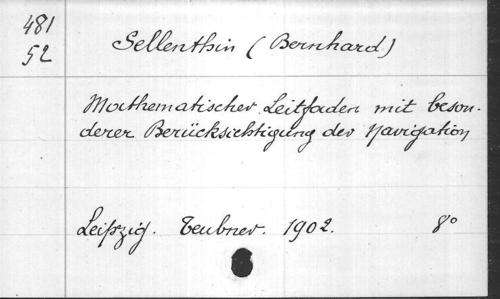 481
52
Sellenthin (Bernhard)
Mathematischer Leitfaden mit beson-
derer Berücksichtigung der Navigation
Leipzig. Teubner. 1902. 8°